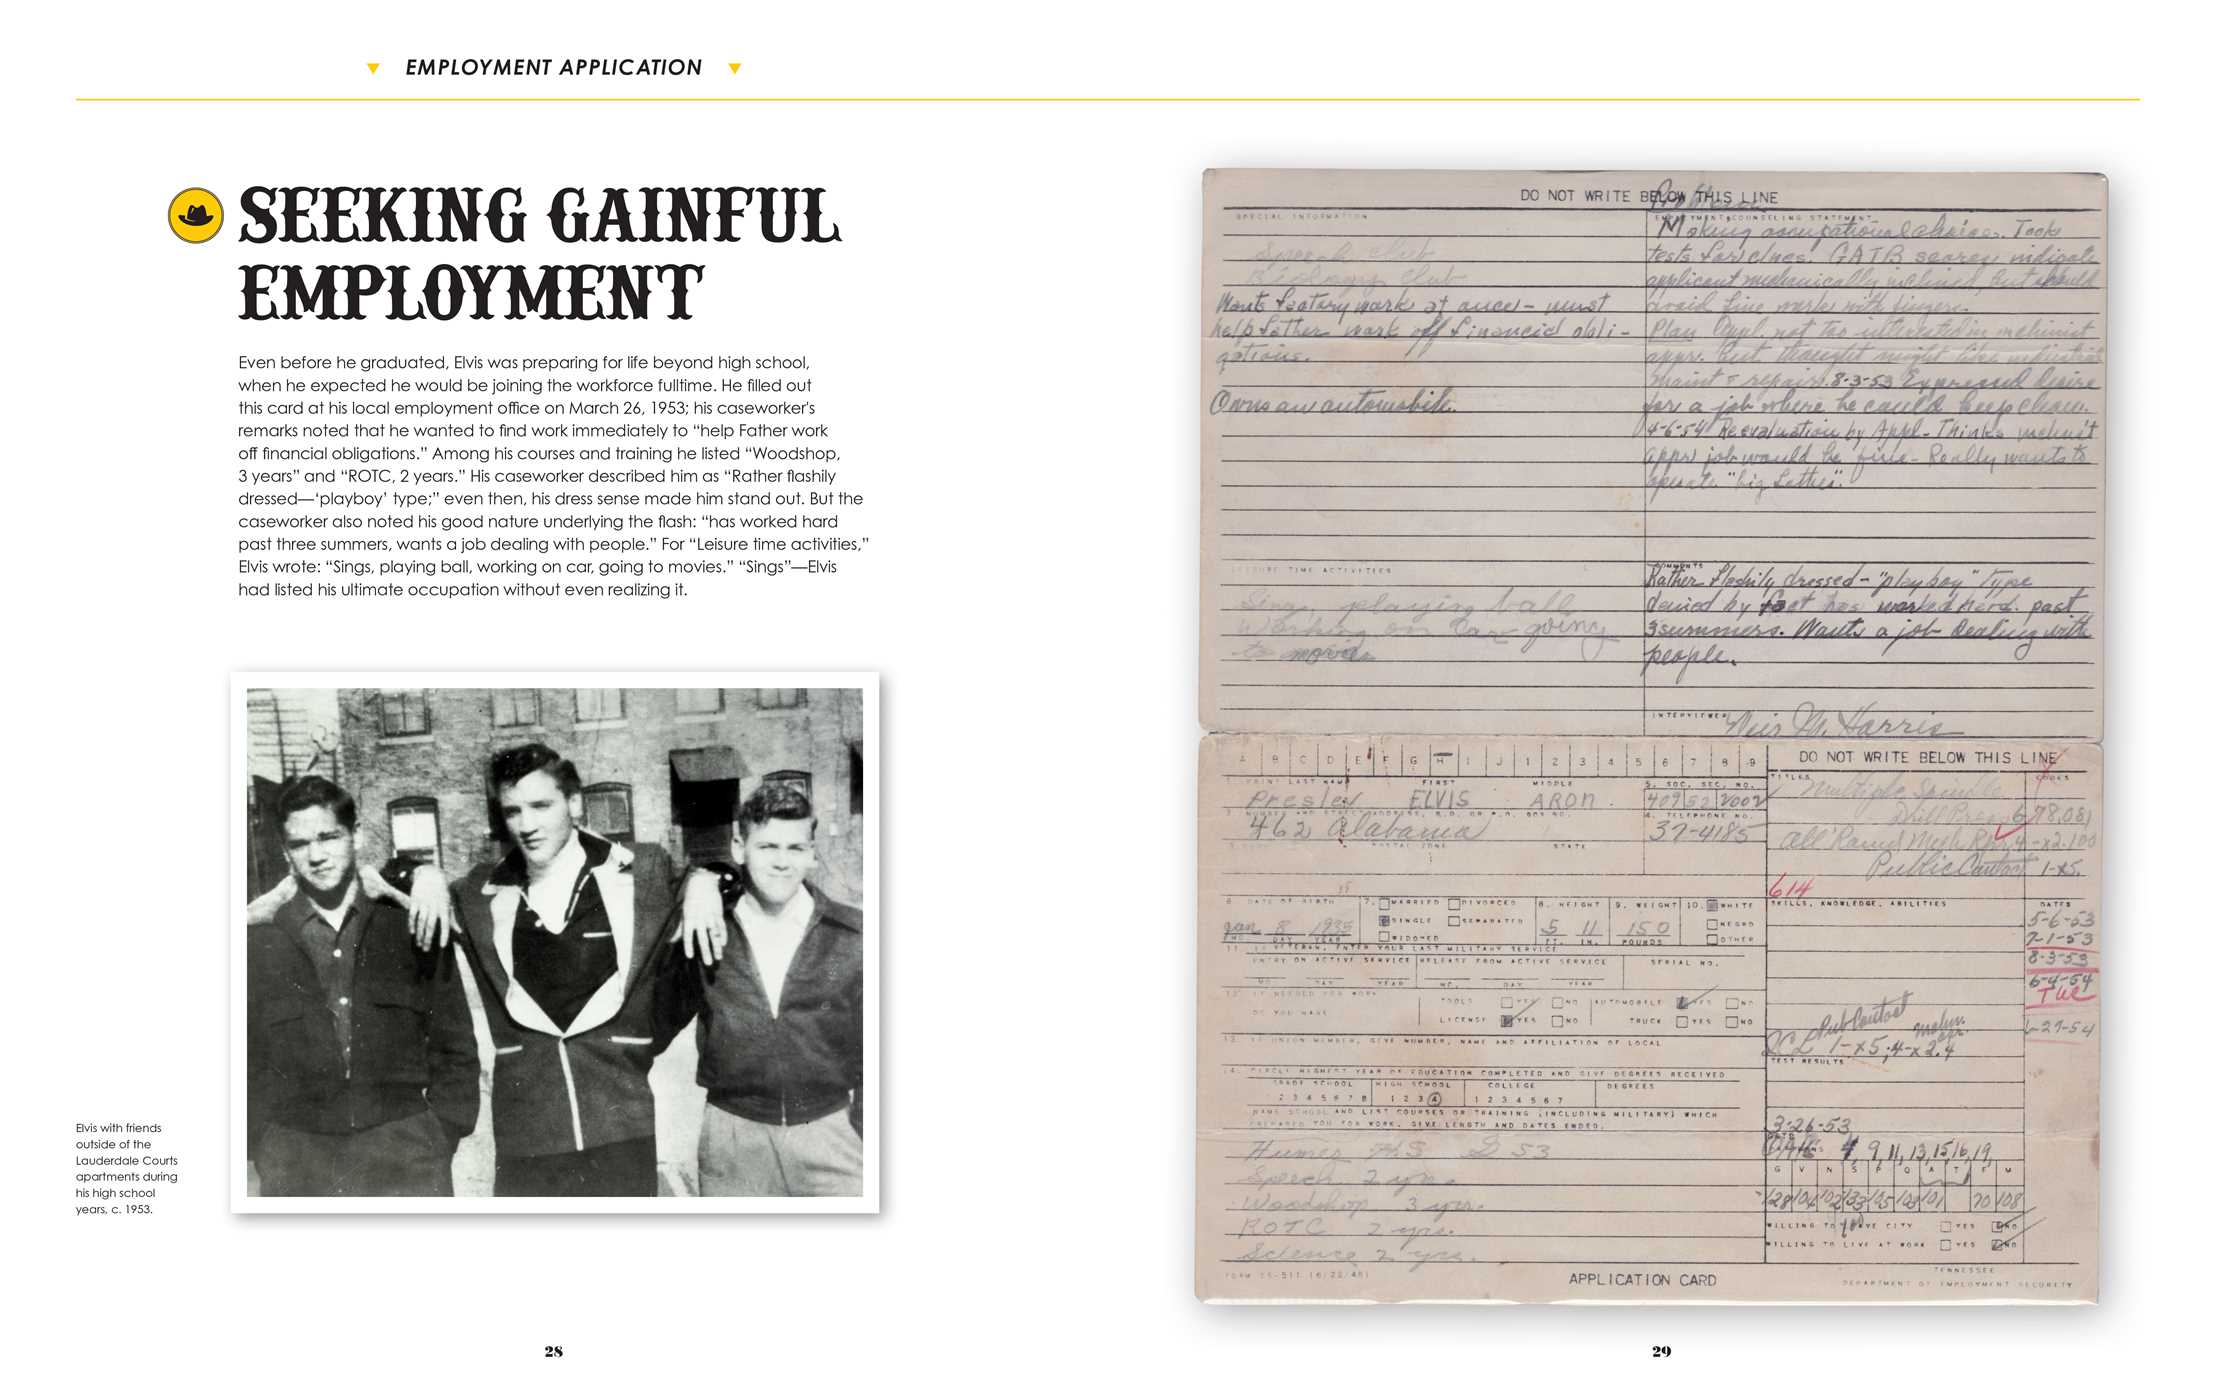 EMPLOYMENT APPLICATION
SEEKING GAINFUL
EMPLOYMENT
Even before he graduated, Elvis was preparing for life beyond high school,
when he expected he would be joining the workforce fulltime. He filled out
this card at his local employment office on March 26, 1953; his caseworker's
remarks noted that he wanted to find work immediately to “help Father work
off financial obligations.” Among his courses and training he listed “Woodshop,
3 years” and “ROTC, 2 years.” His caseworker described him as “Rather flashily
dressed—‘playboy’ type;” even then, his dress sense made him stand out. But the
caseworker also noted his good nature underlying the flash: “has worked hard
past three summers, wants a job dealing with people.” For “Leisure time activities,”
Elvis wrote: “Sings, playing ball, working on car, going to movies.” “Sings”—Elvis
had listed his ultimate occupation without even realizing it.
Elvis with friends
outside of the
Lauderdale Courts
apartments during
his high school
years, c. 1953.
28
DO NOT WRITE BELOW THIS LINE
SPECIAL INFORMATION
Speech Club
Biology Club
Wants factory work at once - must
help father work off financial obli-
gations.
Owns an automobile.
EMPLOYMENT COUNSELING STATEMENT
Making occupational choices. Took
tests for clues. GATB scores indicate
applicant mechanically inclined, but should
avoid fine work with fingers.
Plan Appl. not too interested in machinist
appr. but thought might like industrial
maint & repair. 8-3-53 Expressed desire
for a job where he could keep clean.
4-6-54 Reevaluation by Appl - Thinks machinist
appr job would be fine - Really wants to
operate "big lathes".
LEISURE TIME ACTIVITIES
Sings, playing ball
working on car going
to movies
COMMENTS
Rather flashily dressed - "playboy" type
denied by fact has worked hard past
3 summers. Wants a job dealing with
people.
INTERVIEWER
M. Harris
A B C D E F G H I J 1 2 3 4 5 6 7 8 9
1. PRINT LAST NAME FIRST MIDDLE
Presley ELVIS ARON
5. SOC. SEC. NO.
409 52 2002
2. NUMBER AND STREET ADDRESS, R.D. OR P.O. BOX NO.
462 Alabama
4. TELEPHONE NO.
37-4185
POSTAL ZONE STATE
6. DATE OF BIRTH
Jan 8 1935
MO. DAY YEAR
7. MARRIED DIVORCED
SINGLE SEPARATED
WIDOWED
8. HEIGHT
5 11
FT. IN.
9. WEIGHT
150
POUNDS
10. WHITE
NEGRO
OTHER
11. IF VETERAN, ENTER YOUR LAST MILITARY SERVICE
ENTRY ON ACTIVE SERVICE RELEASE FROM ACTIVE SERVICE SERIAL NO.
MO. DAY YEAR MO. DAY YEAR
12. IF NEEDED FOR WORK
DO YOU HAVE
TOOLS YES NO AUTOMOBILE YES NO
LICENSE YES NO TRUCK YES NO
13. IF UNION MEMBER, GIVE NUMBER, NAME AND AFFILIATION OF LOCAL
14. CIRCLE HIGHEST YEAR OF EDUCATION COMPLETED AND GIVE DEGREES RECEIVED
GRADE SCHOOL HIGH SCHOOL COLLEGE DEGREES
2 3 4 5 6 7 8 1 2 3 4 1 2 3 4 5 6 7
NAME SCHOOL AND LIST COURSES OR TRAINING (INCLUDING MILITARY) WHICH
PREPARED YOU FOR WORK, GIVE LENGTH AND DATES ENDED.
Humes HS 53
Speech 2 yrs.
Woodshop 3 yrs.
ROTC 2 yrs.
Science 2 yrs.
DO NOT WRITE BELOW THIS LINE
TITLES CODES
Multiple Spindle
Drill Press 6-78.081
All Round Mech Rpr. 4-x2.100
Public Contact 1-x5.
614
SKILLS, KNOWLEDGE, ABILITIES DATES
5-6-53
7-1-53
8-3-53
6-4-54
6-27-54
Pub Contact
1-x5; 4-x2.4
TEST RESULTS
3-26-53
9, 11, 13, 15, 16, 19,
G V N S P Q A T F M
128 104 102 133 105 103 101 70 108
WILLING TO LEAVE CITY YES NO
WILLING TO LIVE AT WORK YES NO
FORM ES-511 (6/22/48)
APPLICATION CARD
TENNESSEE
DEPARTMENT OF EMPLOYMENT SECURITY
29